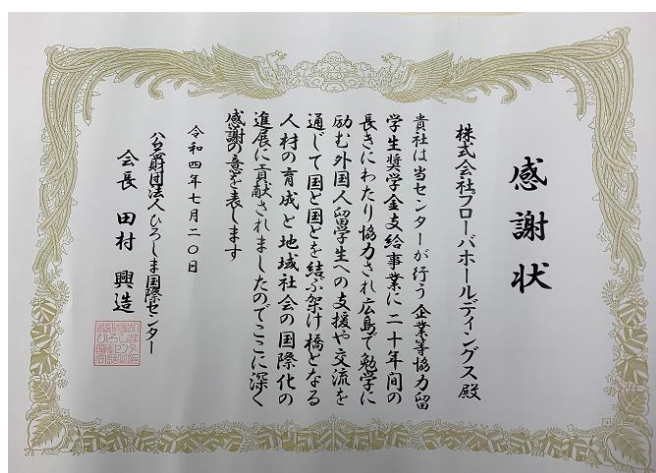 感謝状
株式会社フローバホールディングス 殿
貴社は当センターが行う企業等協力留
学生奨学金支給事業に二十年間の
長きにわたり協力され広島で勉学に
励む外国人留学生への支援や交流を
通じて国と国とを結ぶ架け橋となる
人材の育成と地域社会の国際化の
進展に貢献されましたのでここに深く
感謝の意を表します
令和四年七月二〇日
公益財団法人ひろしま国際センター
会長 田村 興造